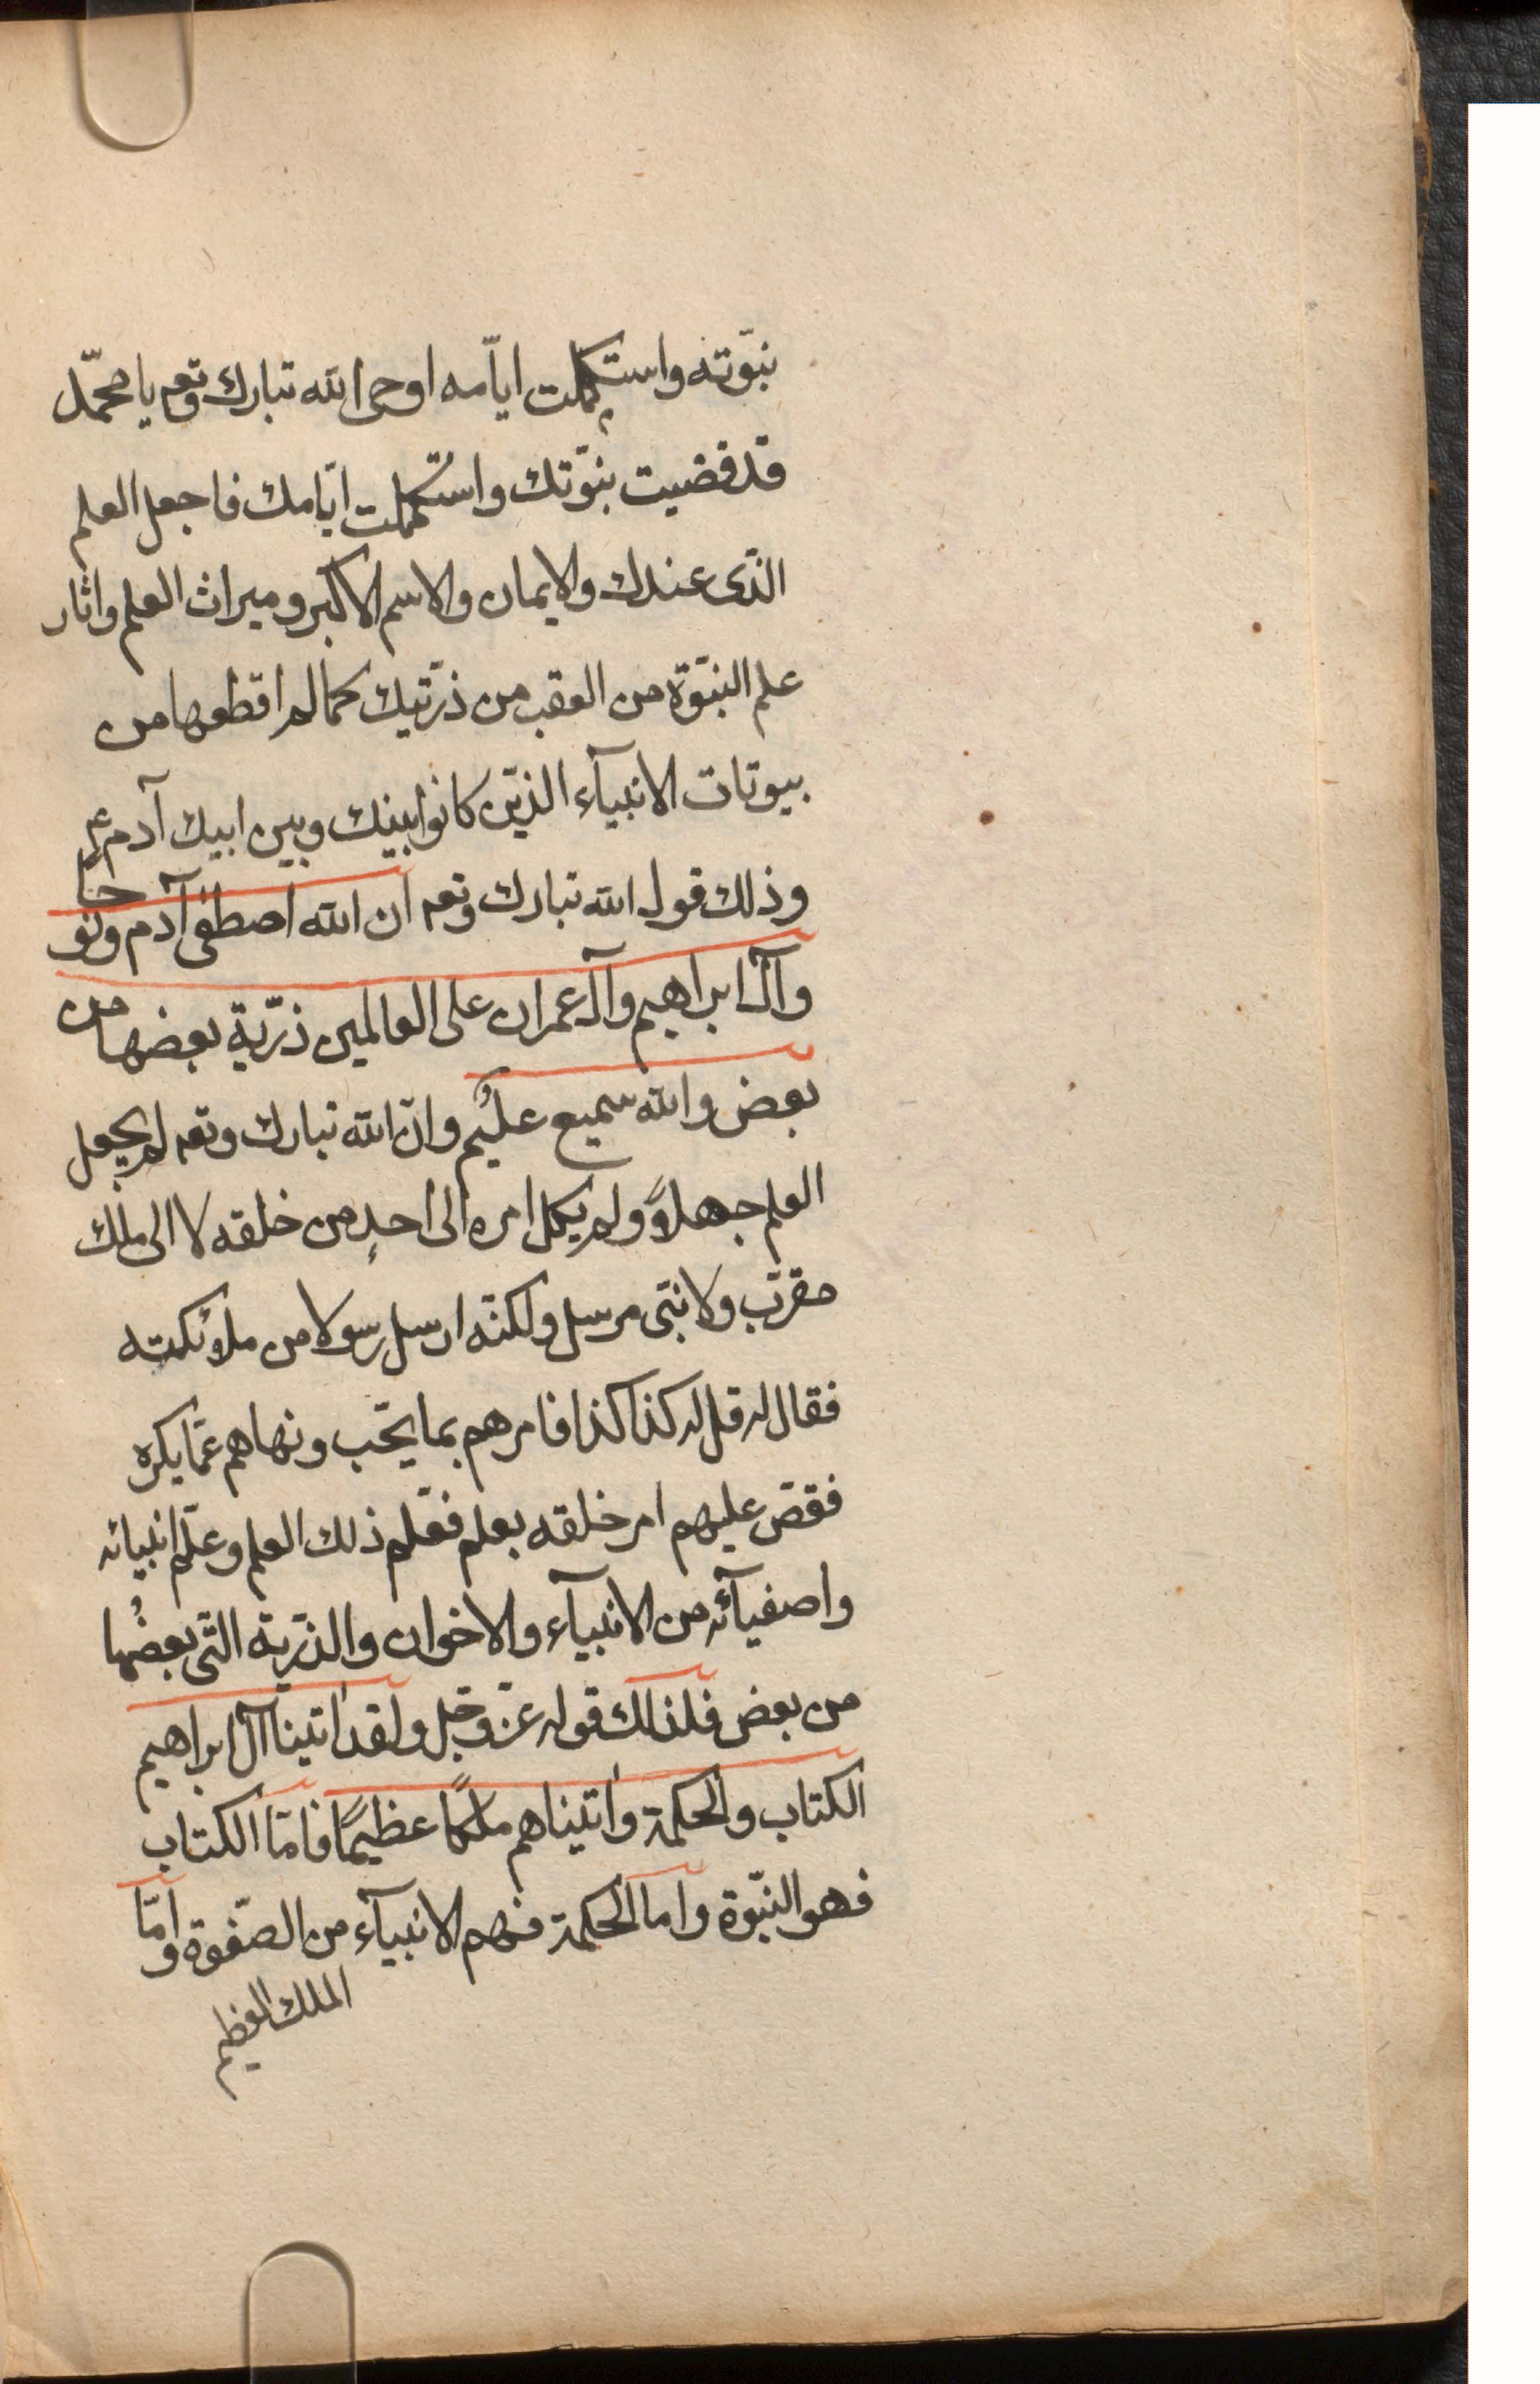 نبوّته واستكملت ايّامه اوحى الله تبارك وتعم يا محمّد
قد قضيت نبوّتك واستكملت ايّامك فاجعل العلم
الذى عندك والايمان والاسم الاكبر وميراث العلم واثار
علم النبوّة من العقب من ذرّيتك كما لم اقطعها من
بيوتات الانبيآء الذين كانوا بينك وبين ابيك آدم ع
وذلك قول الله تبارك وتعم ان الله اصطفى آدم ونوحا
وآل ابراهيم وآل عمران على العالمين ذرّية بعضها من
بعض والله سميع عليم وانّ الله تبارك وتعم لم يجعل
العلم جهلاً ولم يكل امره الى احدٍ من خلقه لا الى ملك
مقرّب ولا نبىّ مرسل ولكنّه ارسل رسولا من ملائكته
فقال له قل له كذا كذا فامرهم بما يحبّ ونهاهم عمّا يكره
فقصّ عليهم امر خلقه بعلم فعلّم ذلك العلم وعلّم انبيائه
واصفيآئه من الانبيآء والاخوان والذرّية التّى بعضُها
من بعض فلذالك قوله عزّ وجلّ ولقد اتينا آل ابراهيم
الكتاب والحكمة واتيناهم ملكًا عظيمًا فامّا الكتاب
فهو النبّوة واما الحكمة فهم الانبيآء من الصّفوة وامّا
الملك العظيم